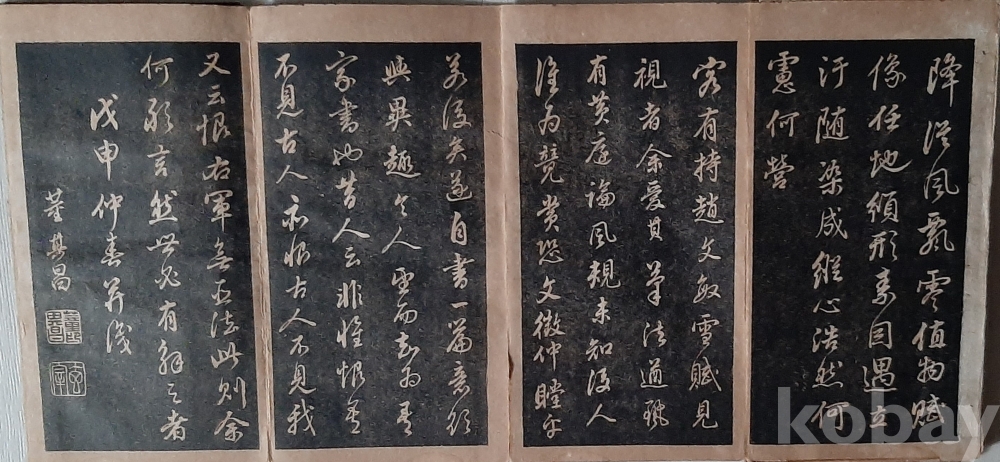 降從風飄零值物賦
像任地頒形素因遇立
汙随染成縱心浩然何
慮何營
客有持趙文敏雪賦見
視者余愛其筆法遒麗
有黃庭論風規未知後人
誰為競賞恐文徵仲瞠乎
若後矣遂自書一篇意欲
與異趣令人望而知為吾
家書也昔人云非惟恨吾
不見古人亦恨古人不見我
又云恨右軍無臣法此則余
何敢言然世必有解之者
戊申仲春并識
董其昌
kobay